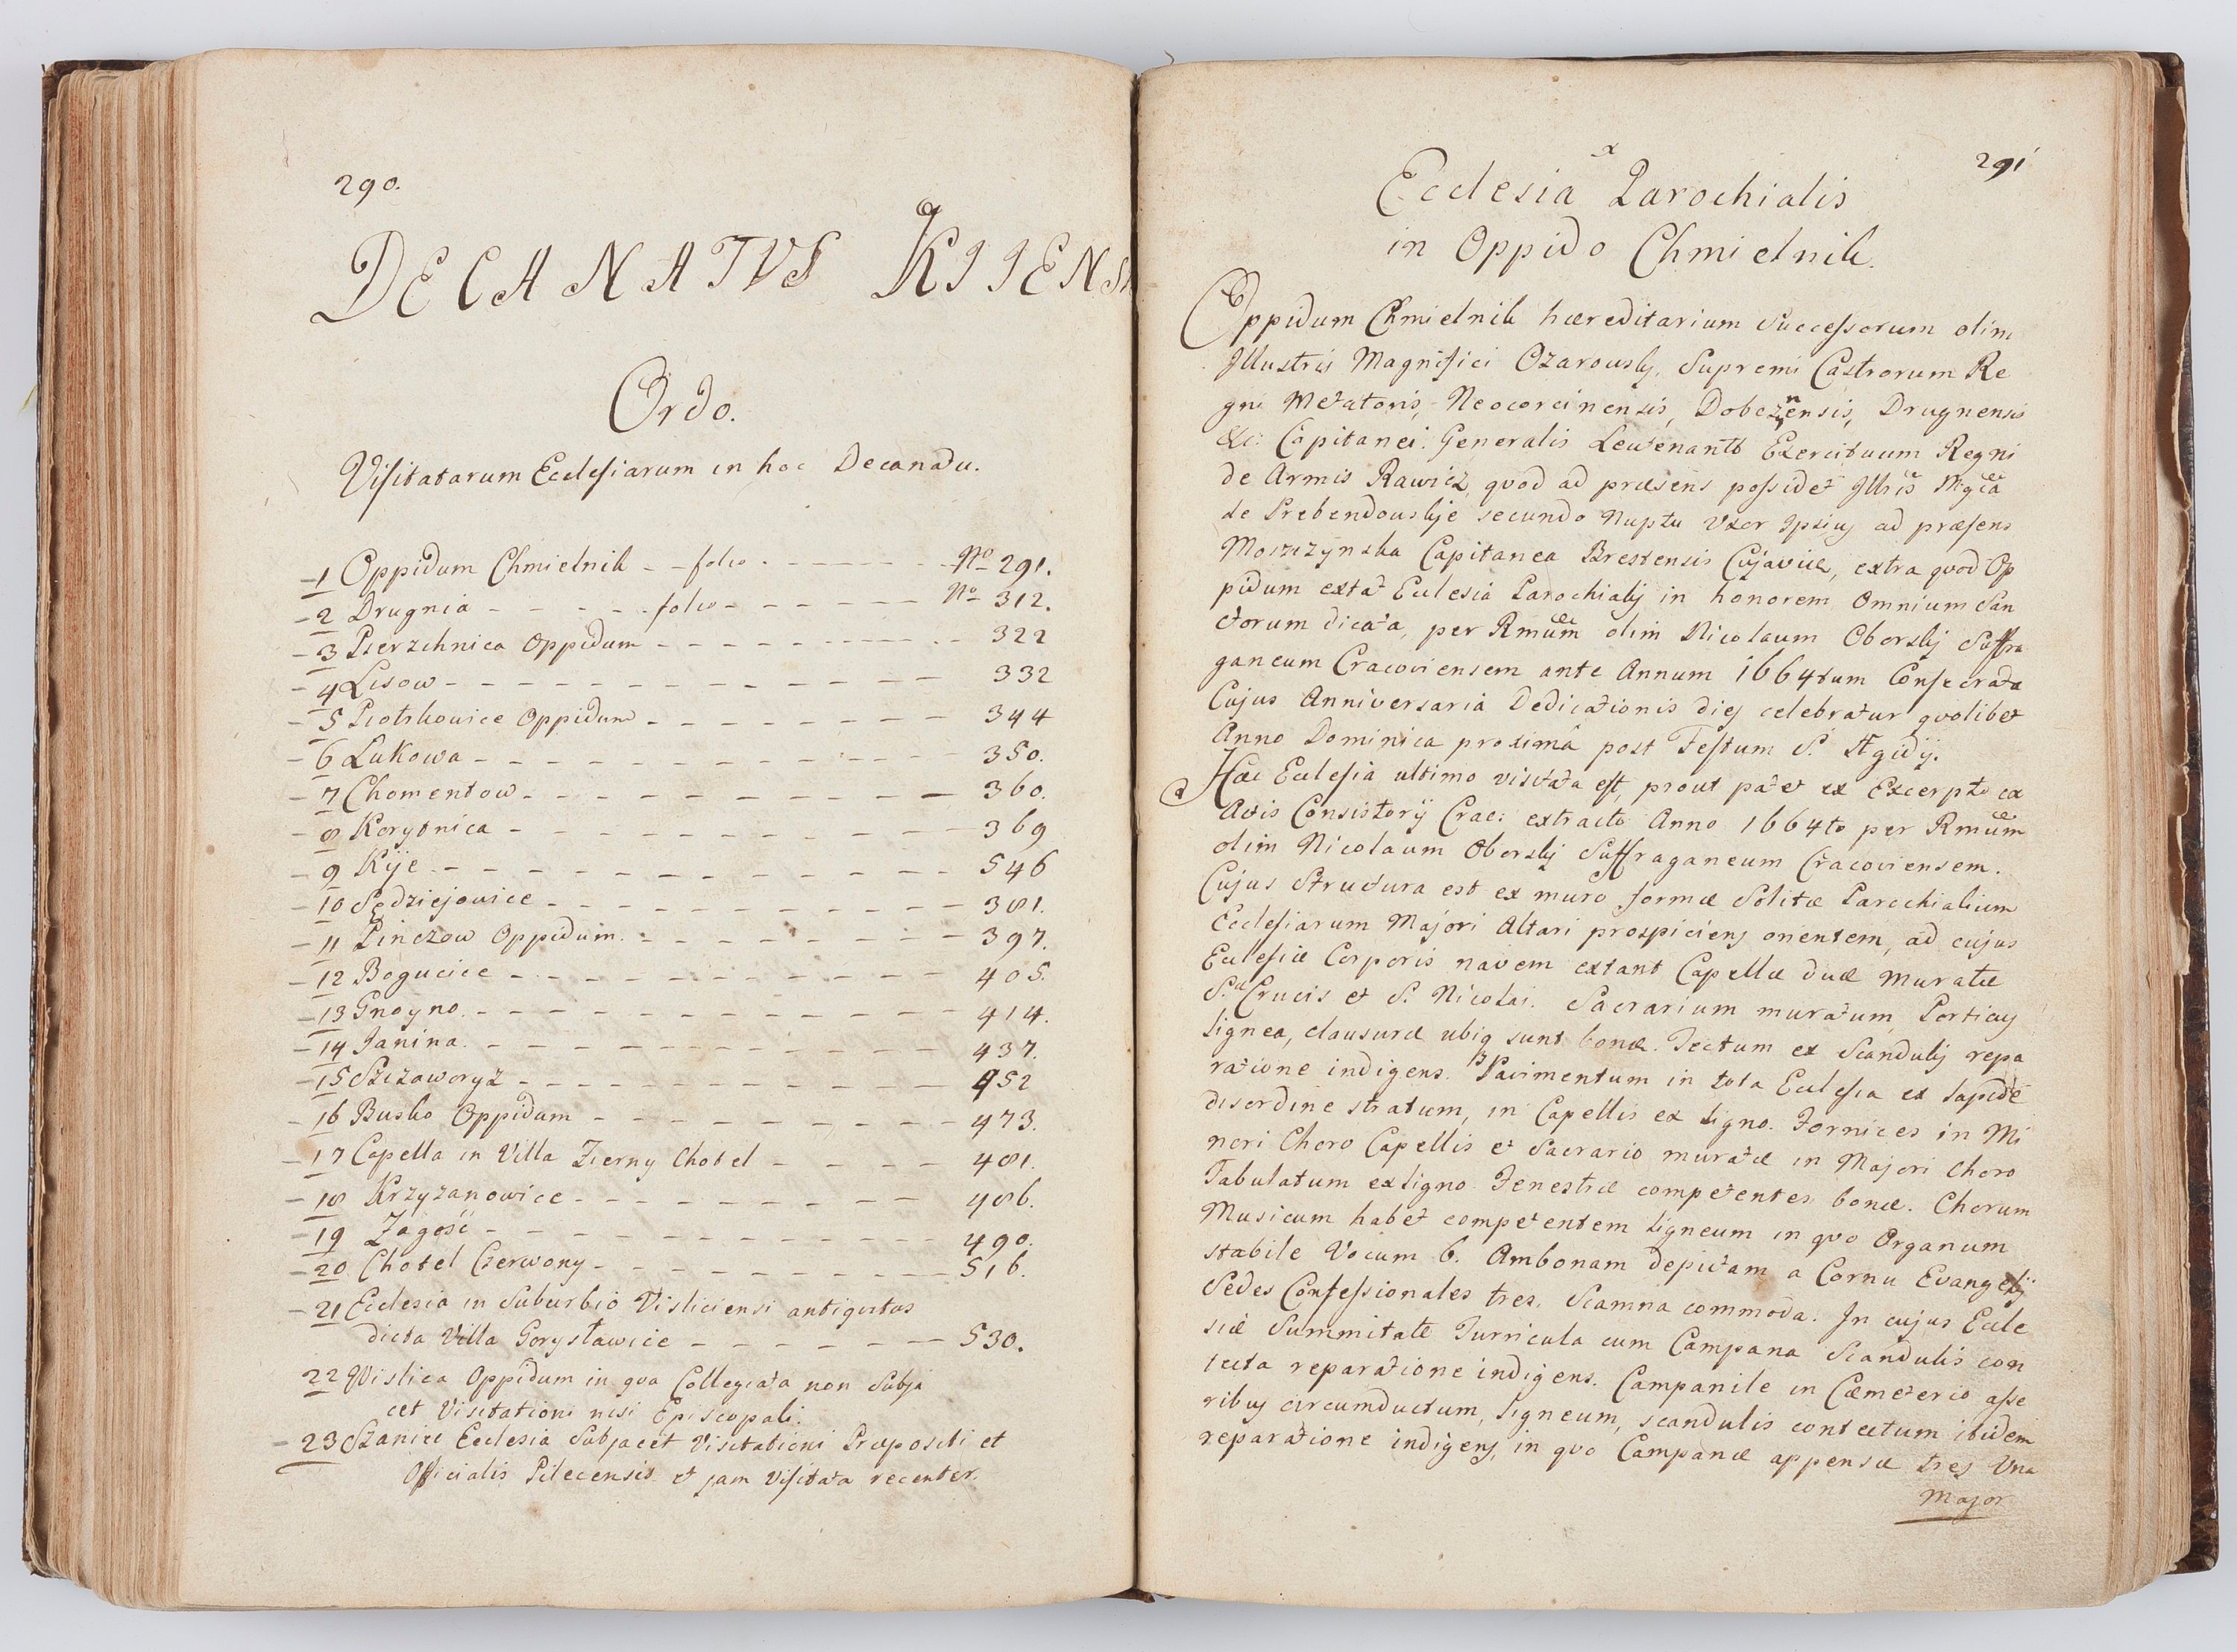 290.
DECANATVS KIIENSI
Ordo.
Visitatarum Ecclesiarum in hoc Decanatu.
1 Oppidum Chmielnik - - folio - - - - - No 291.
2 Drugnia - - - - - folio - - - - - - No 312.
3 Pierzchnica Oppidum - - - - - - - - - 322
4 Lisow - - - - - - - - - - - - - - 332
5 Piotrkowice Oppidum - - - - - - - - 344
6 Lukowa - - - - - - - - - - - - - 350.
7 Chomentow - - - - - - - - - - - - 360.
8 Korytnica - - - - - - - - - - - - 369
9 Kije - - - - - - - - - - - - - - 546
10 Sędziejowice - - - - - - - - - - - 381.
11 Pinczow Oppidum - - - - - - - - - 397.
12 Bogucice - - - - - - - - - - - - 405.
13 Gnoyno - - - - - - - - - - - - - 414.
14 Janina - - - - - - - - - - - - - 437.
15 Szczaworyż - - - - - - - - - - - - 452
16 Busko Oppidum - - - - - - - - - 473.
17 Capella in Villa Zierny Chotel - - - - 481.
18 Krzyżanowice - - - - - - - - - - 486.
19 Zagość - - - - - - - - - - - - - 490.
20 Chotel Czerwony - - - - - - - - - - 516.
21 Ecclesia in Suburbio Visliciensi antiquitus
dicta Villa Gorysławice - - - - - - - 530.
22 Wislica Oppidum in qva Collegiata non Subja
cet Visitationi nisi Episcopali.
23 Szaniec Ecclesia Subjacet Visitationi Præpositi et
Officialis Pilecensis et jam Visitata recenter.
291
Ecclesia Parochialis
in Oppido Chmielnik.
Oppidum Chmielnik hæreditarium Successorum olim
Illustris Magnifici Ozarowskj, Supremi Castrorum Re
gni Metatoris, Neocorcinensis, Dobcznensis, Drugnensis
&c: Capitanei. Generalis Leutenantt Exercituum Regni
de Armis Rawicz, qvod ad præsens possidet Illris Mgca
de Prebendowskje secundo Nuptu Vxor Ipsius ad præsens
Moszczynska Capitanea Brestensis Cujaviæ, extra qvod Op
pidum extat Ecclesia Parochialis in honorem Omnium San
ctorum dicata, per Rmum olim Nicolaum Oborskj Suffra
ganeum Cracoviensem ante Annum 1664tum Consecrata
Cujus Anniversaria Dedicationis dies celebratur qvolibet
Anno Dominica proximâ post Festum S. Ægidij.
Hæc Ecclesia ultimo visitata est, prout patet ex Excerpto ex
Actis Consistorij Crac: extracto Anno 1664to per Rmum
olim Nicolaum Oborskj Suffraganeum Cracoviensem.
Cujus Structura est ex muro formæ Solitæ Parochialium
Ecclesiarum Majori Altari prospiciens orientem, ad cujus
Ecclesiæ Corporis navem extant Capellæ duæ muratæ
S. Crucis et S. Nicolai. Sacrarium muratum Porticus
lignea, clausuræ ubiq sunt bonæ. Tectum ex Scandulis repa
ratione indigens. Pavimentum in tota Ecclesia ex lapide
disordine stratum, in Capellis ex ligno. Fornices in Mi
nori Choro Capellis et Sacrario muratæ in Majori Choro
Tabulatum ex ligno. Fenestræ competentes bonæ. Chorum
Musicum habet competentem ligneum in qvo Organum
stabile Vocum 6. Ambonam depictam a Cornu Evangelij
Sedes Confessionales tres. Scamna commoda. In cujus Eccle
siæ Summitate Turricula cum Campana Scandulis con
tecta reparatione indigens. Campanile in Cæmeterio asse
ribus circumductum, ligneum, scandulis contectum itidem
reparatione indigens, in qvo Campanæ appensæ tres Una
Major